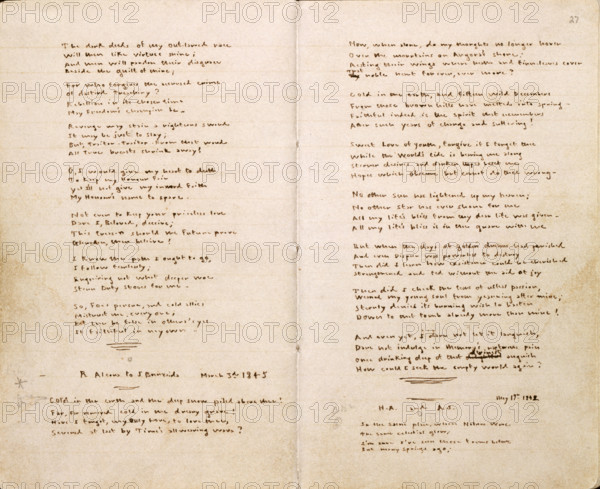 27
The dark deeds of my outlawed race
Will then like virtues shine;
And men will pardon their disgrace
Beside the guilt of mine;
For who forgives the accursed crime
Of dastard treachery?
Rebellion in its chosen time
May Freedom's champion be -
Revenge may stain a righteous sword
It may be just to slay;
But, Traitor - Traitor - from that word
All true breasts shrink away!
O, I would give my heart to death
To keep my honour fair
Yet I'll not give my inward Faith
My Honour's name to spare -
Not even to keep your priceless love
Dare I, Beloved, deceive;
This treason should the Future prove
then believe!
I know the path I ought to go,
I follow fearlessly,
Enquiring not what deeper woe
Stern Duty stores for me -
So, Foes pursue, and cold allies
Mistrust me, every one;
Let me be false in others' eyes
If faithful in my own -
R Alcona to J Brenzaida March 3rd 1845
Cold in the earth and the deep snow piled above thee!
Far, far removed cold in the dreary grave!
Have I forgot, my Only Love, to love thee,
Severed at last by Time's wave?
Now, when alone, do my thoughts no longer hover
Over the mountains on shore;
Resting their wings where heath and fern-leaves cover
noble heart for ever, ever more?
Cold in the earth, and fifteen wild Decembers
From those brown hills have melted into spring -
Faithful indeed is the spirit that remembers
After such years of change and suffering!
Sweet Love of youth, forgive if I forget thee
While the World's tide is bearing me along
desires and hopes beset me
Hopes which obscure but cannot do thee wrong -
No other sun has lightened up my heaven;
No other Star has ever shone for me
All my life's bliss from thy dear life was given -
All my life's bliss is in the grave with thee
But when the days of golden dreams had perished
And even Despair was powerless to destroy
Then did I learn how existence could be cherished
Strengthened and fed without the aid of joy
Then did I check the tears of useless passion,
Weaned my young soul from yearning after thine;
Sternly denied its burning wish to hasten
Down to that tomb already more than mine!
And even yet, I dare not let it languish,
Dare not indulge in Memory's rapturous pain
Once drinking deep of that divinest anguish
How could I seek the empty world again?
PHOTO12